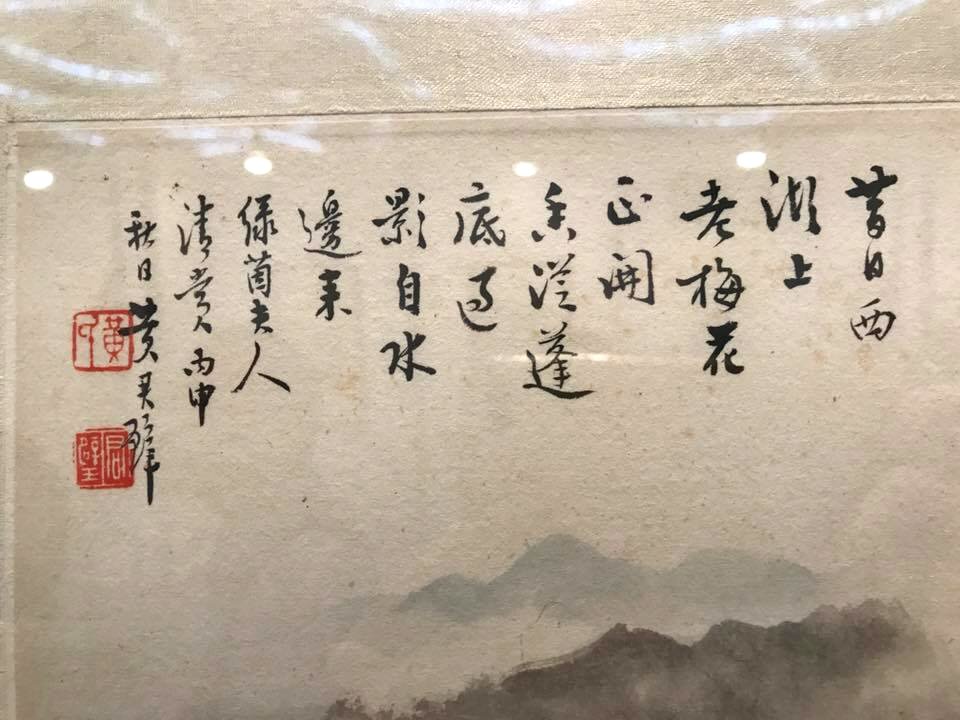 昔日西
湖上
老梅花
正開
香從蓬
底過
影自水
邊來
綠茵夫人
清賞 丙申
秋日 黃君璧
黃印
君璧